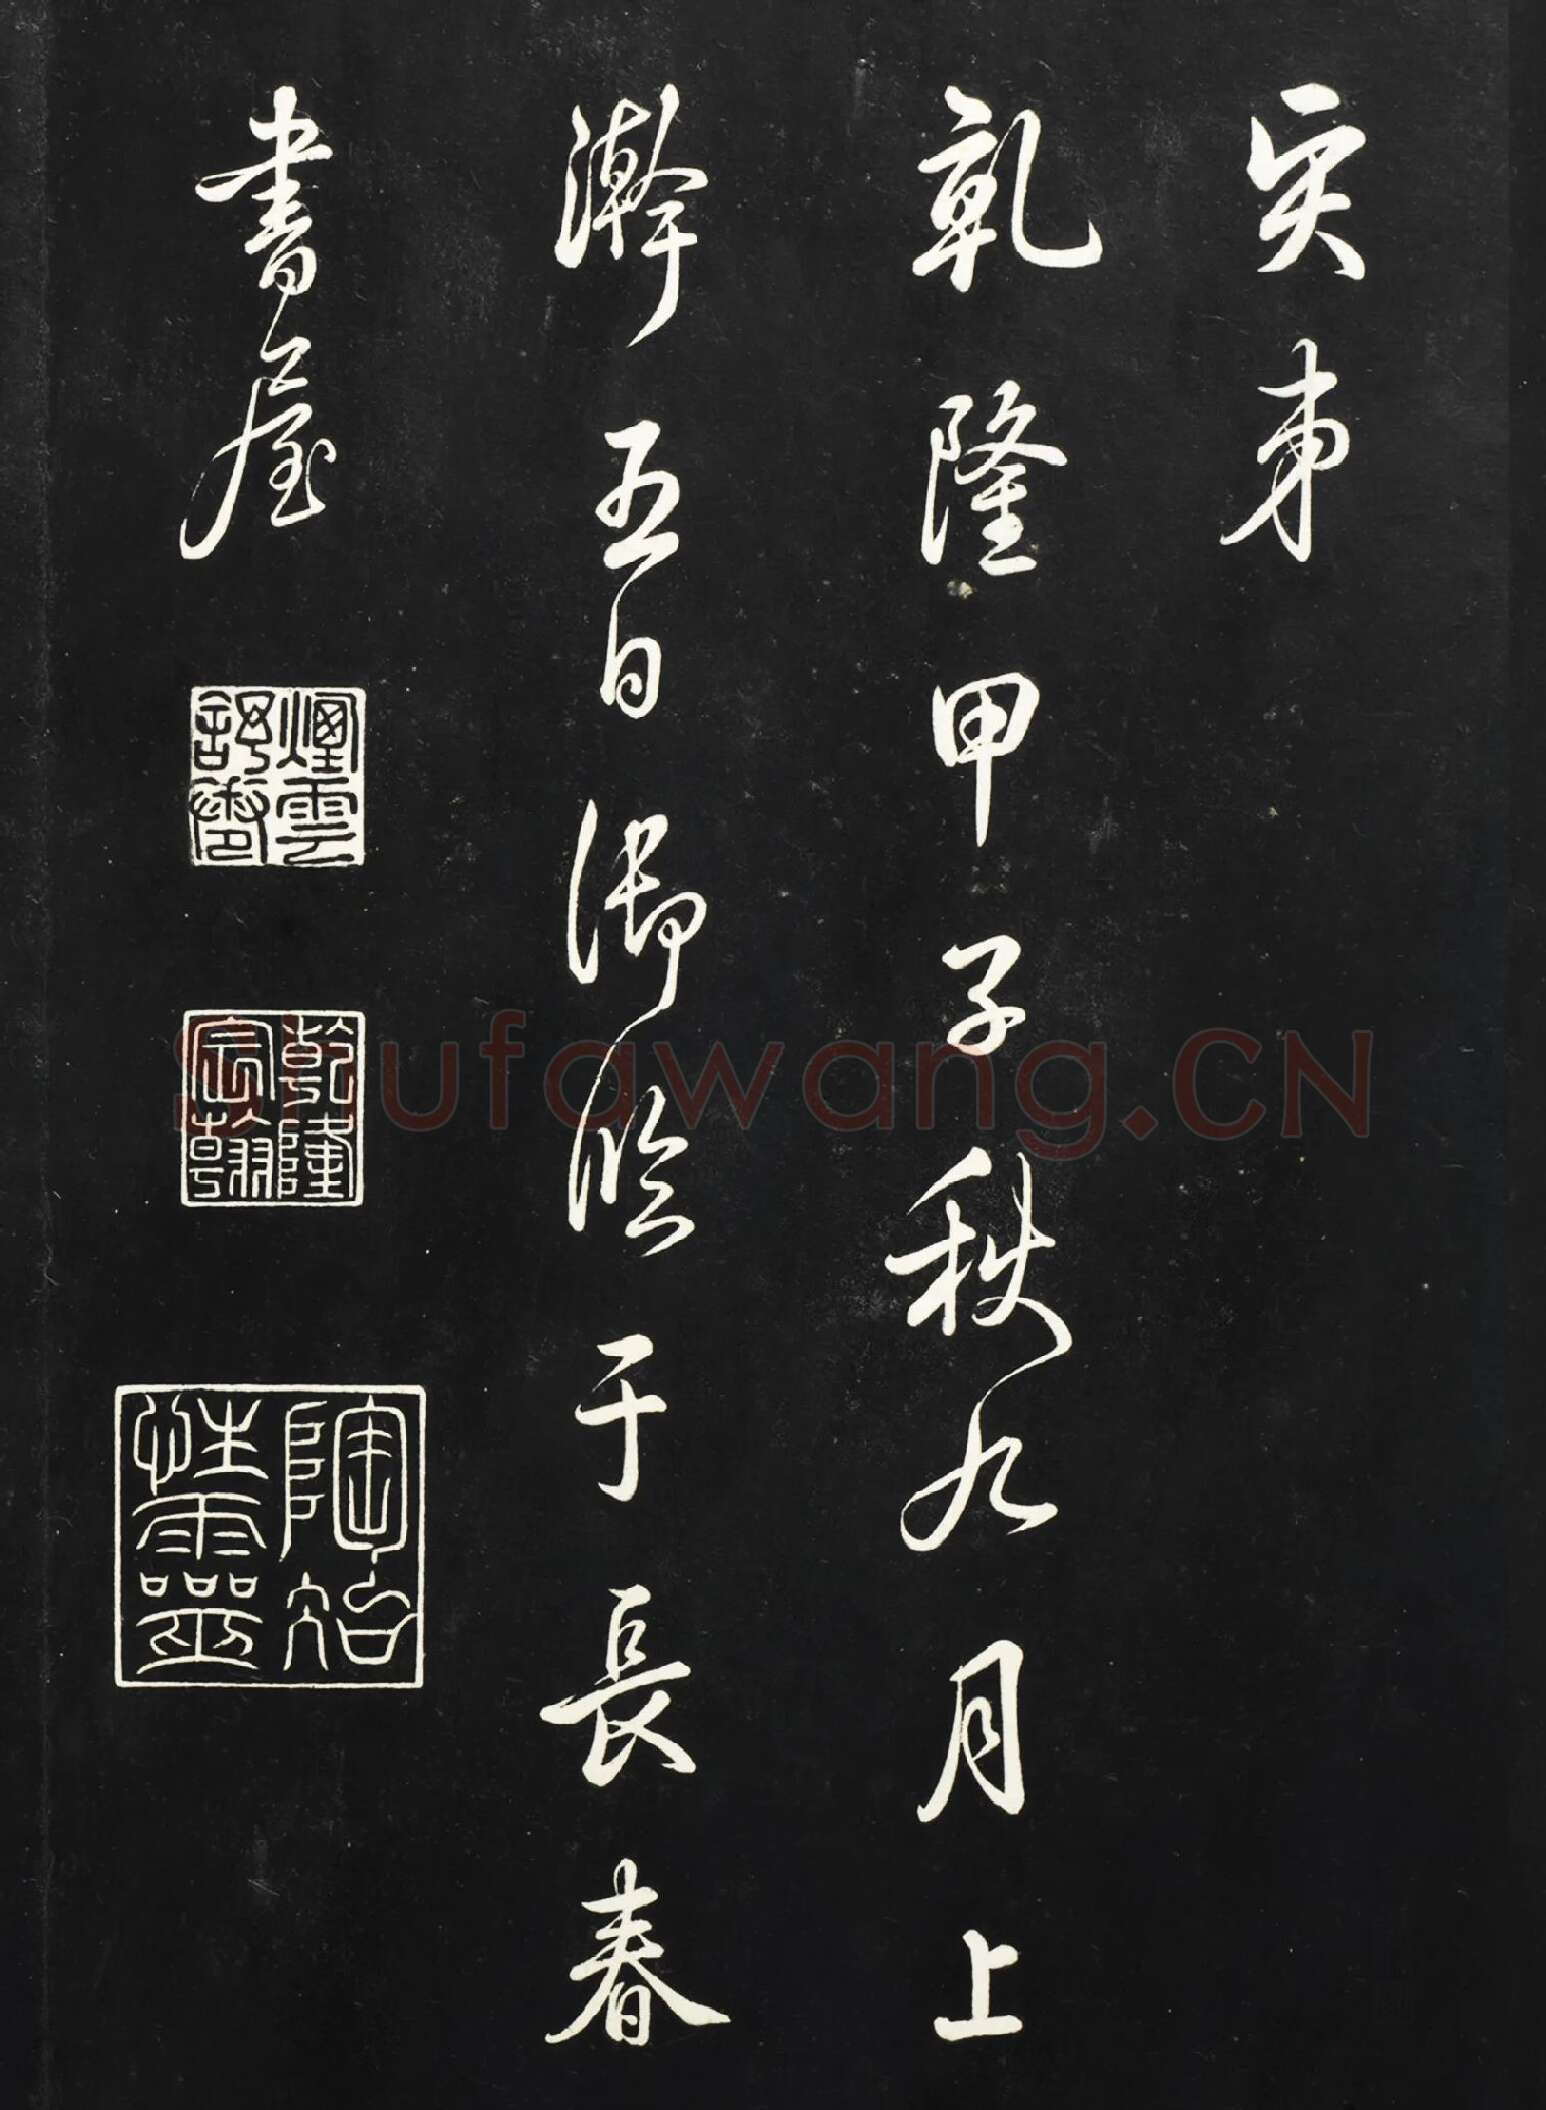 乾隆甲子秋九月上
澣五日御臨于長春
書屋
煙雲舒卷
乾隆宸翰
陶冶性靈
shufawang.CN